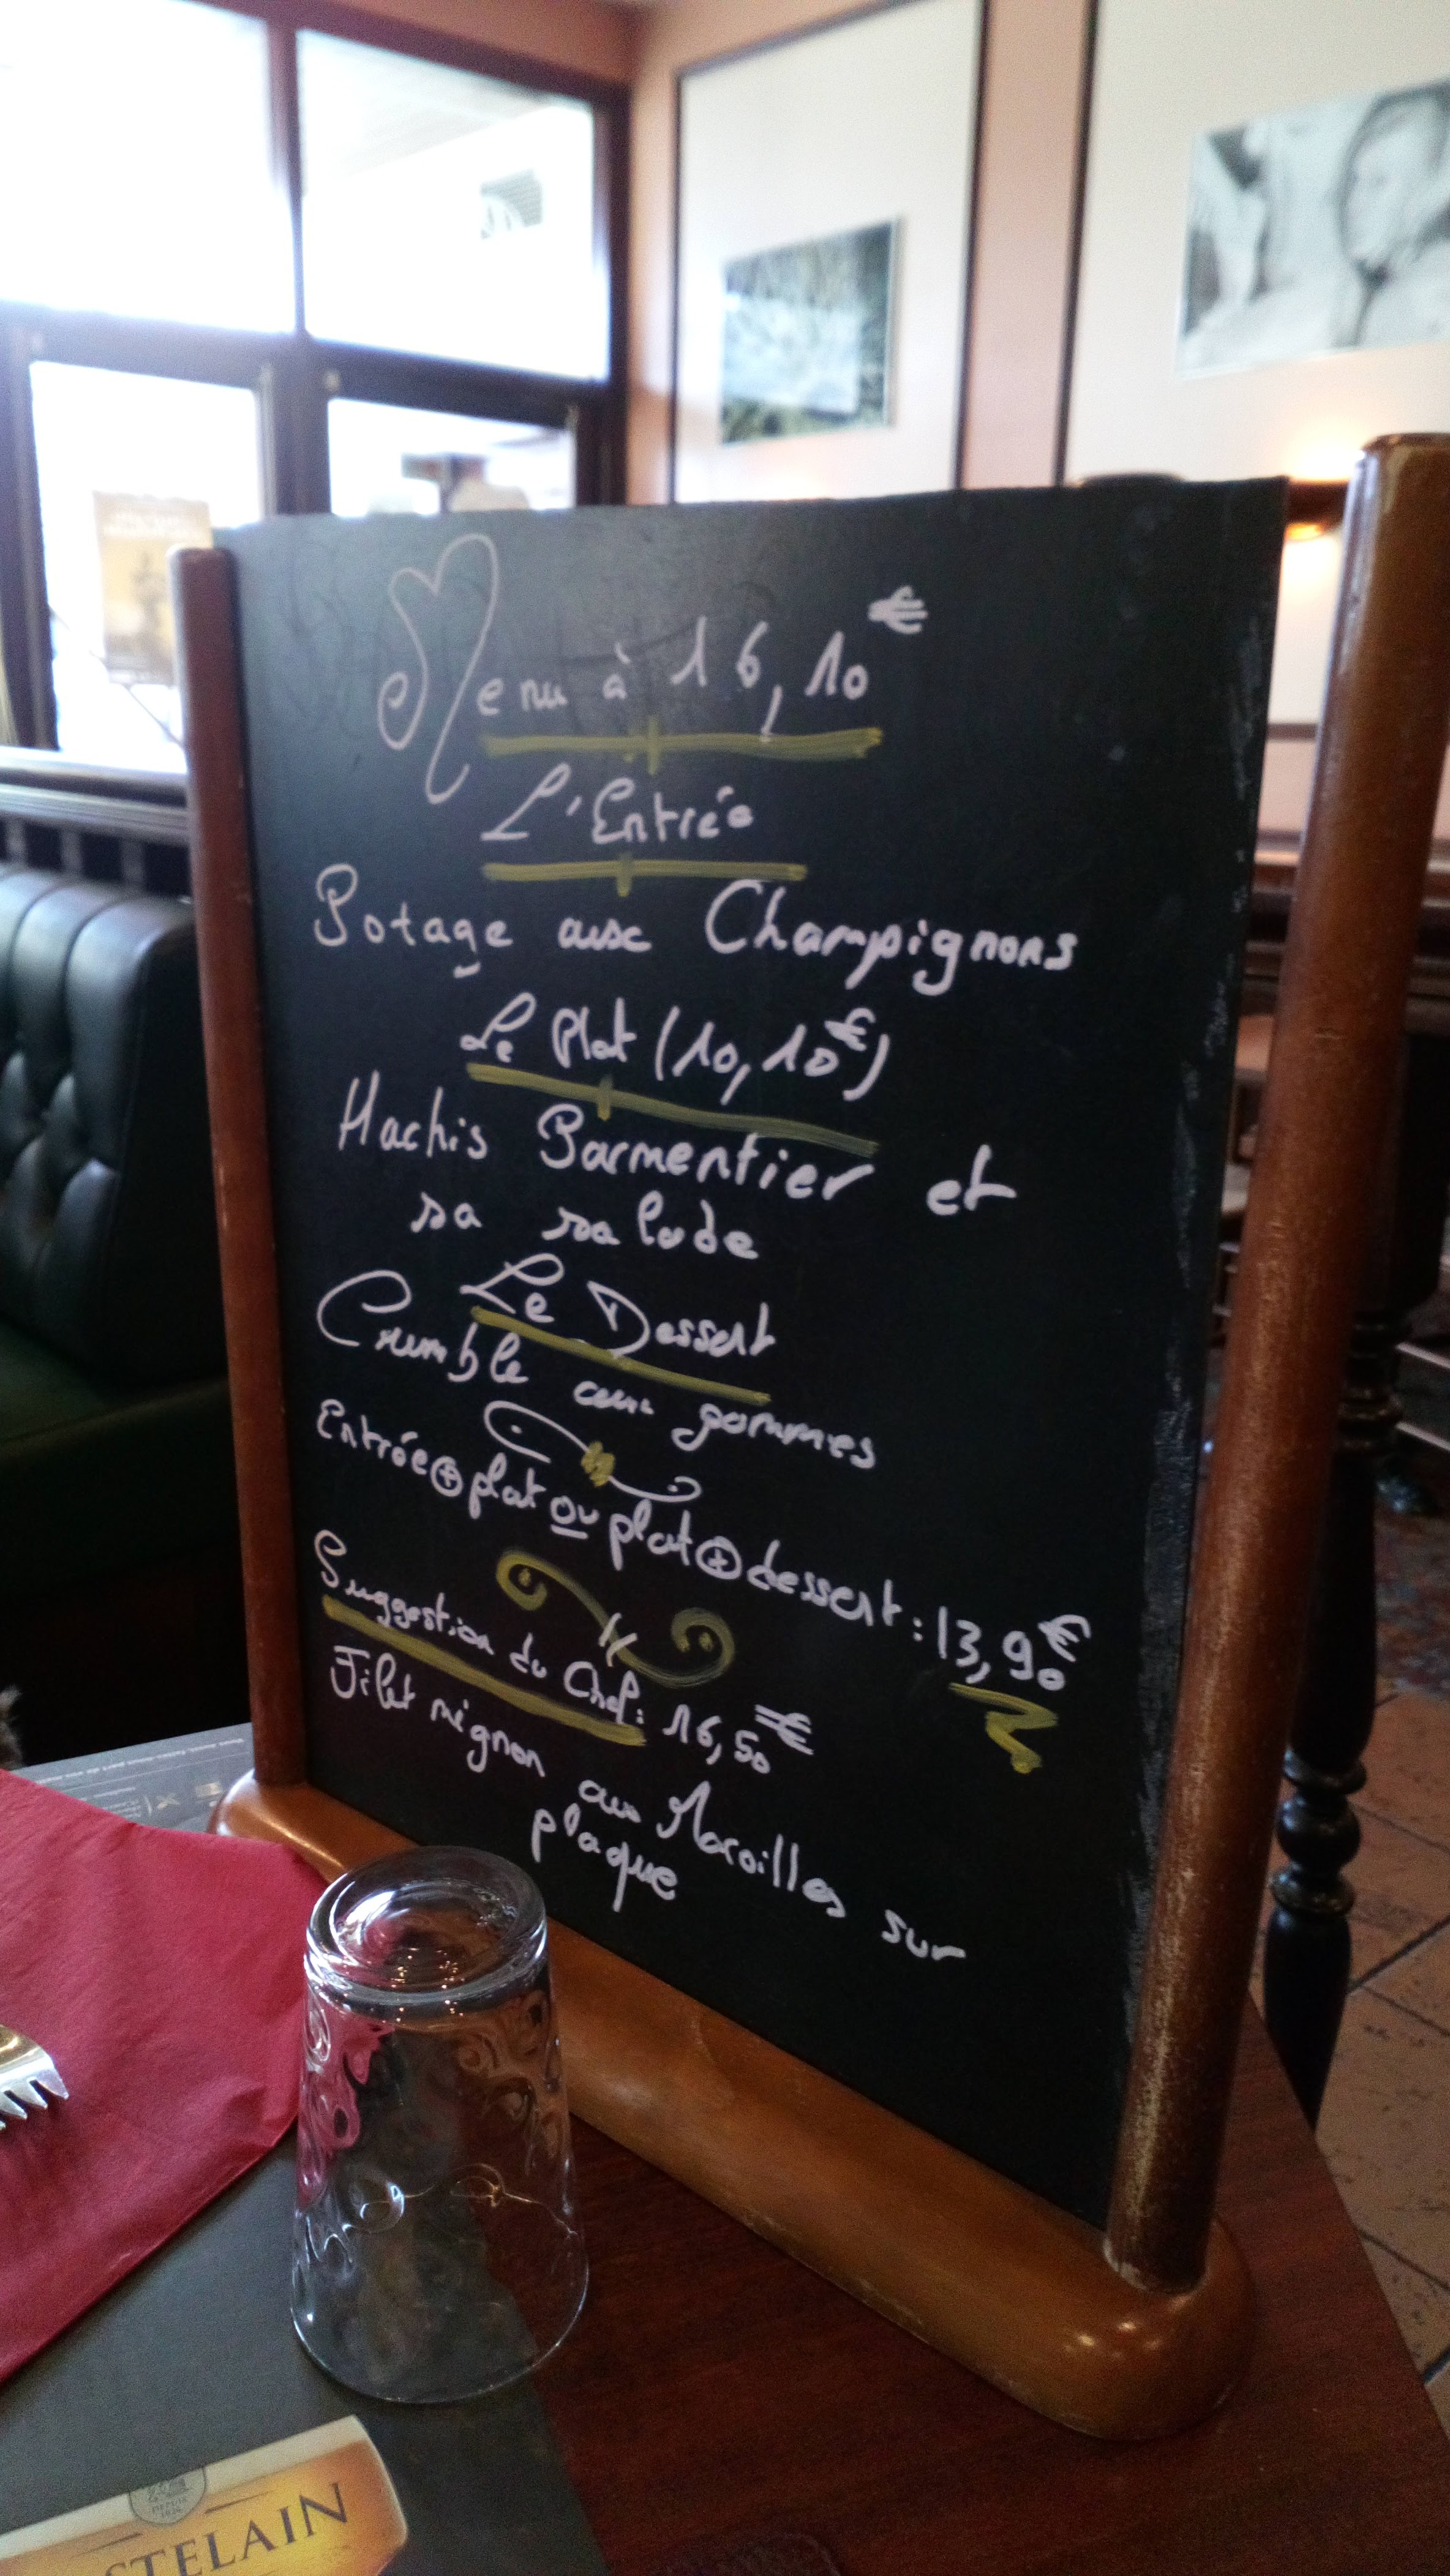 Menu à 16,10€
L'Entrée
Potage aux Champignons
Le Plat (10,10€)
Hachis Parmentier et
sa salade
Le Dessert
Crumble aux pommes
Entrée + plat ou plat + dessert : 13,90€
Suggestion du Chef : 16,50€
Filet mignon au Maroilles sur
plaque
STELAIN